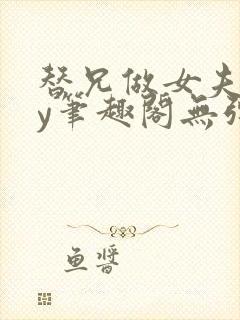 替兄做女夫
y笔趣阁无弹
鱼酱